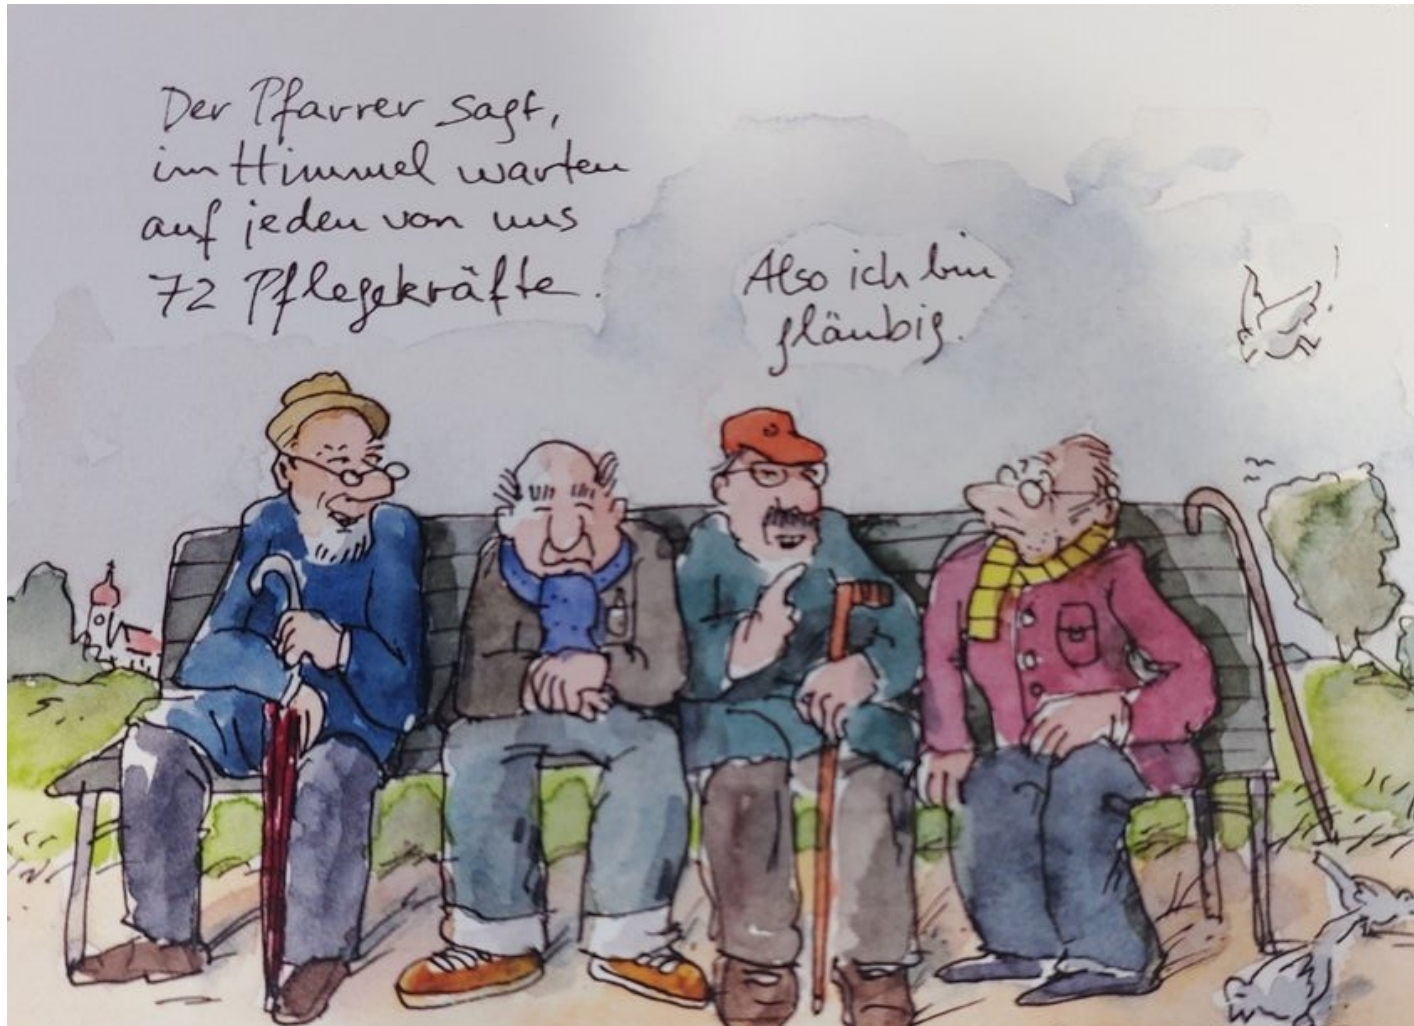 Der Pfarrer sagt,
im Himmel warten
auf jeden von uns
72 Pflegekräfte.
Also ich bin
gläubig.